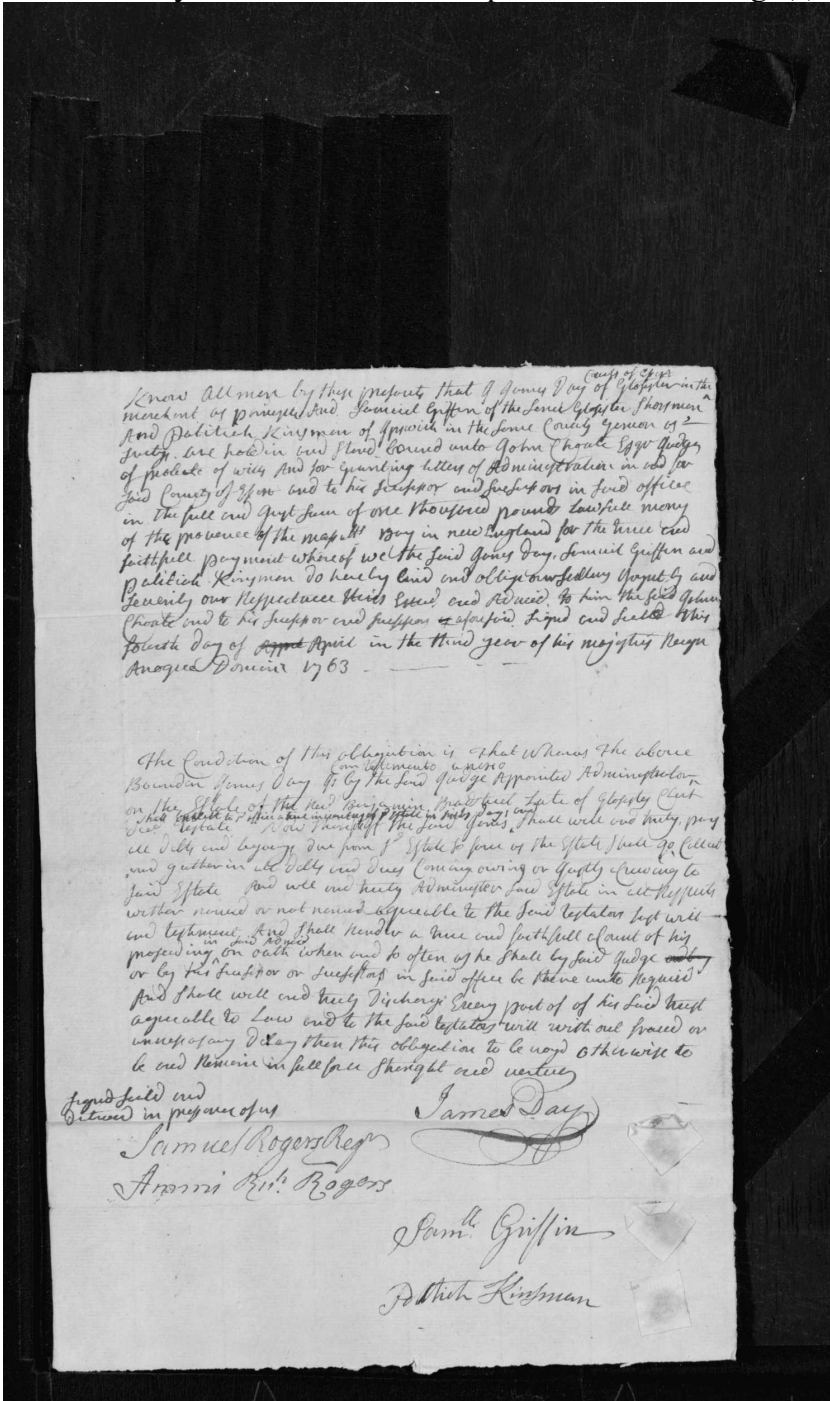 County of Essex
Know All men by these presents that I James Day of Glocester in the
merchant as princeple And Samuel Griffin of the Said Glocester Shorman
And Pelitiah Kinsman of Ipswich in the Same County yeoman as
suritys are holdin and Stand bound unto John Choate Esqr Judge
of probate of wills And for Granting letters of Administration in and for
Said County of Essex and to his Sucessor and Sucessors in Said office
in the full and Just Sum of one thousand pounds Lawfull mony
of the provence of the massatts Bay in new England for the true and
faithfull payment whereof we the Said James Day, Samuel Griffin and
Pelitiah Kinsman do hereby bind and oblige our Selves Joyntly and
Severily our Respective Heirs and To him the Said John
Choate and to his Sucessor and Sucessors aforesaid, Signd and Seeled this
fourth day of April in the third year of his majestys Reign
Anoque Domini 1763
The Condition of this obligation is That Whereas The above
Com Testamento anexo
Bounden James Day is by the Said Judge Appointed Administrator
on the Estate of the Revd Benjamin Bradstreet Late of Glocester Clerk
testate Now Therefore if the Said James Shall well and truly pay
all debts and due from sd Estate So farr as the Estate Shall go, Collect
and gather in all debts and dues Coming owing or Justly to
Said Estate And well and truly Administer Said Estate in all Respects
wither named or not named agreeable to the Said testators last will
and testiment And Shall Render a true and faithfull acount of his
in Said
proseding on oath when and So often as he Shall by Said Judge
or by his Sucessor or Sucessors in Said office be there unto Requird
And Shall well and truly Discharge Every part of of his Said trust
agreeable to Law and to the Said testators will with out fraud or
unnesesary Delay then this obligation to be voyd otherwise to
be and Remain in full force Strenght and vertue
Signd Seeld and
Delivered in presence of us
James Day
Samuel Rogers Regr
Ammi Ruh. Rogers
Samll Griffin
Pelitiah Kinsman